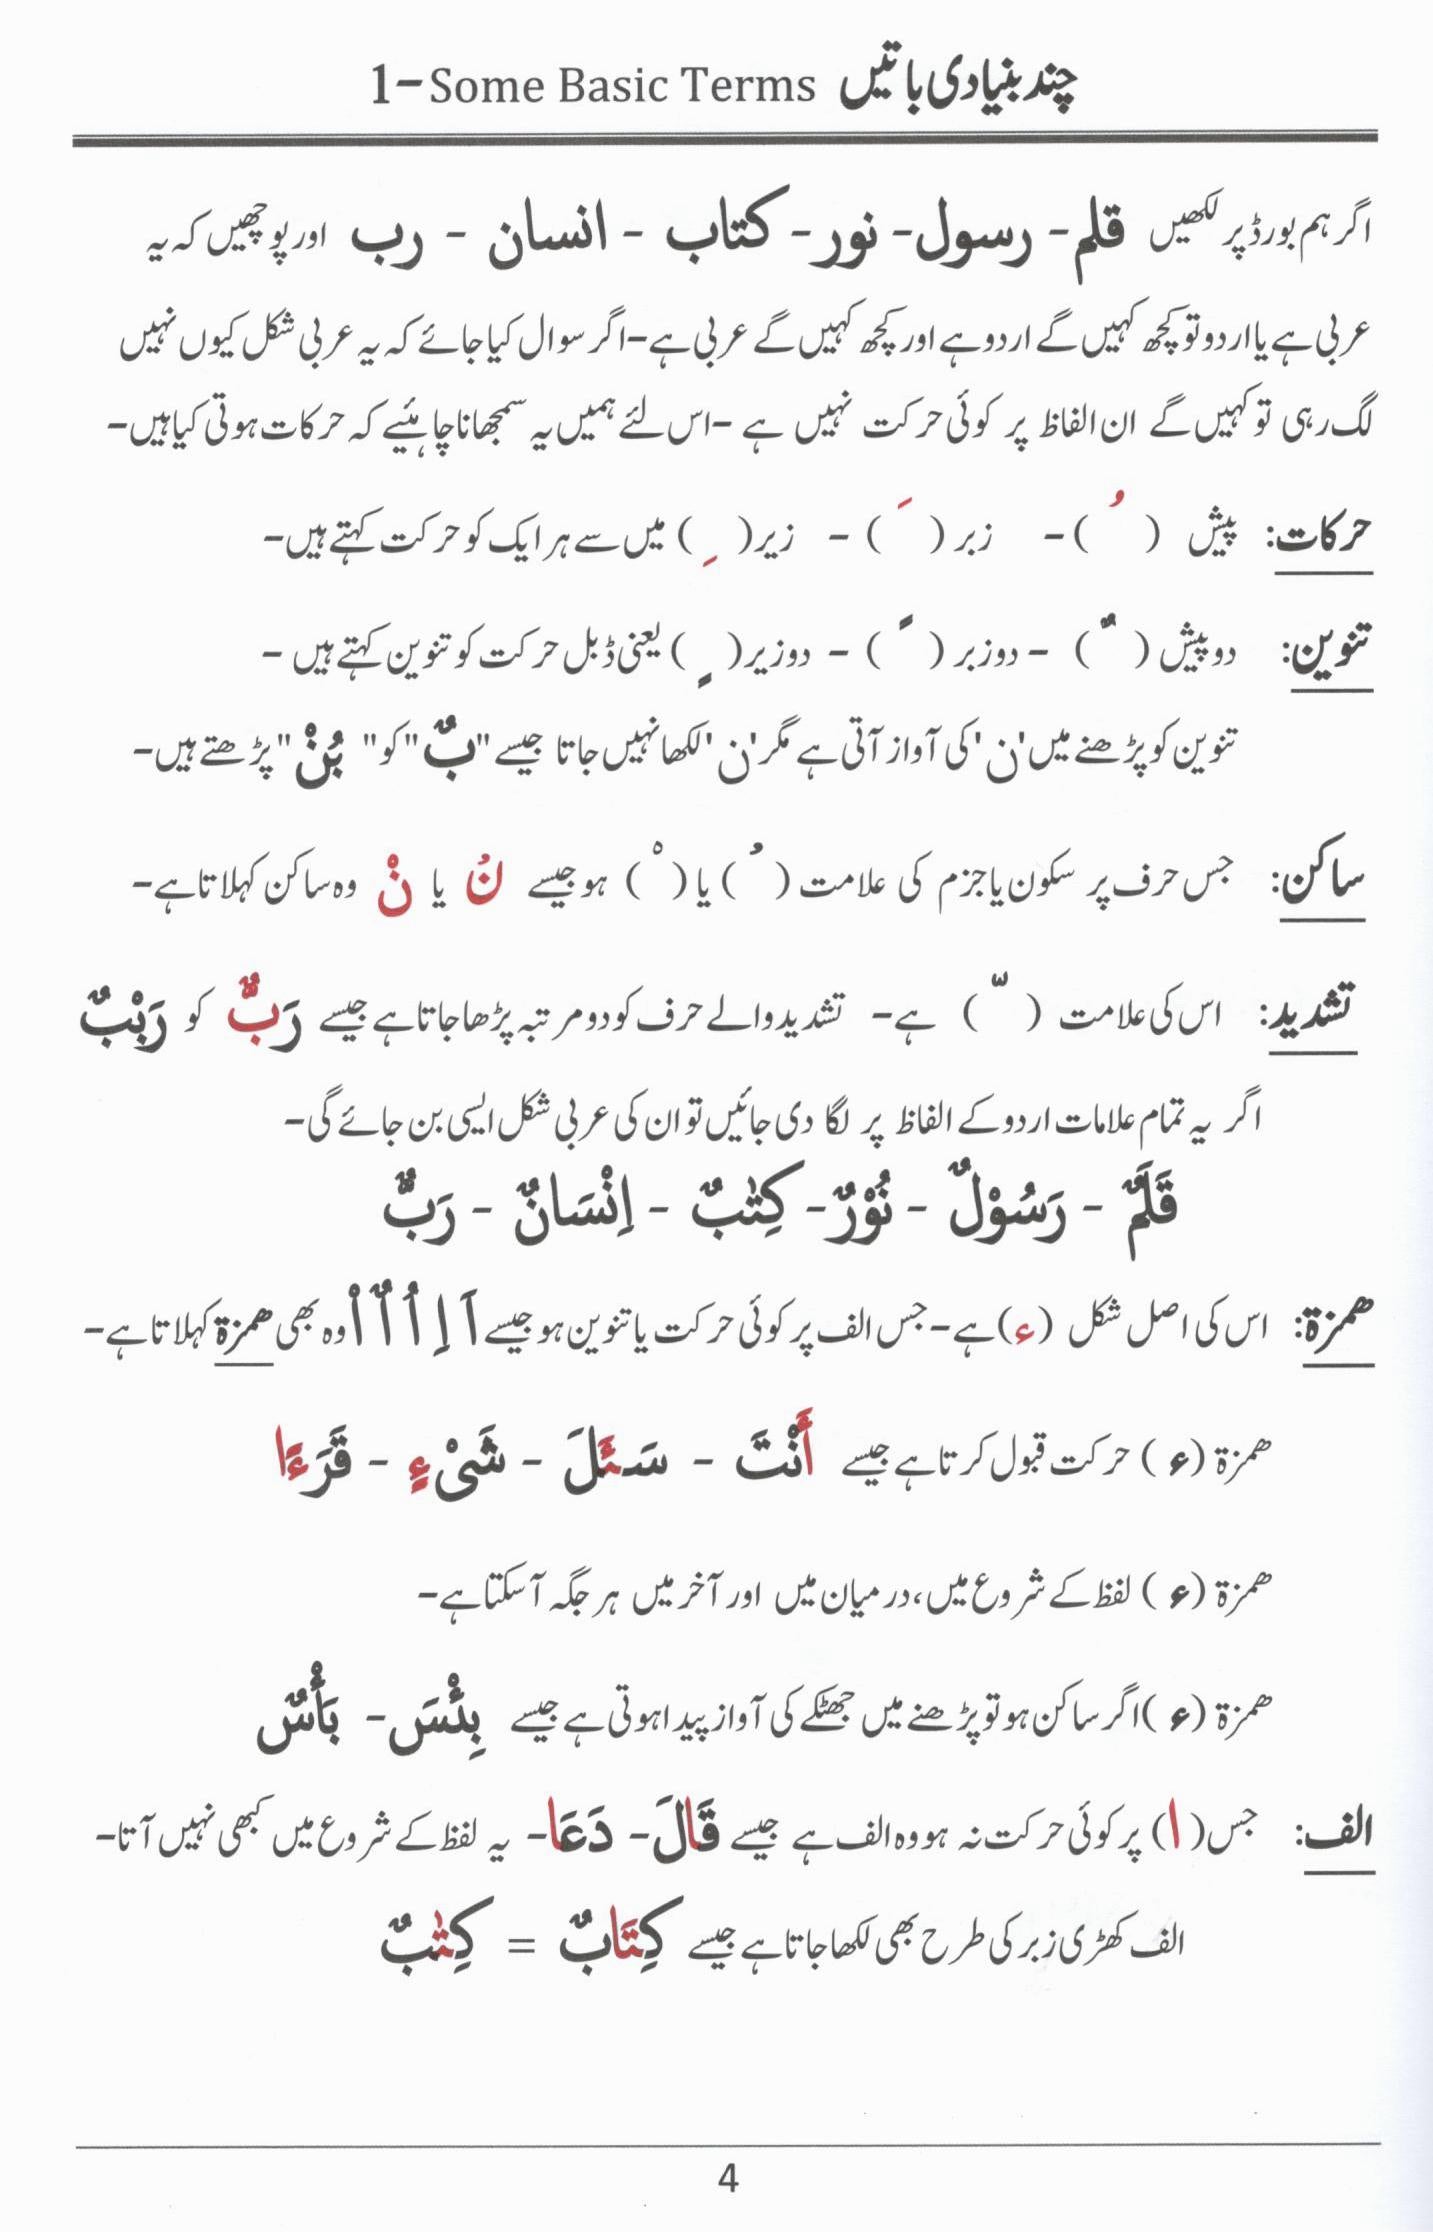 1- Some Basic Terms چند بنیادی باتیں
اگر ہم بورڈ پر لکھیں قلم - رسول - نور - کتاب - انسان - رب اور پوچھیں کہ یہ
عربی ہے یا اردو تو کچھ کہیں گے اردو ہے اور کچھ کہیں گے عربی ہے- اگر سوال کیا جائے کہ یہ عربی شکل کیوں نہیں
لگ رہی تو کہیں گے ان الفاظ پر کوئی حرکت نہیں ہے - اس لئے ہمیں یہ سمجھانا چاہئیے کہ حرکات ہوتی کیا ہیں-
حرکات: پیش ( ُ ) - زبر ( َ ) - زیر ( ِ ) میں سے ہر ایک کو حرکت کہتے ہیں-
تنوین: دو پیش ( ٌ ) - دو زبر ( ً ) - دو زیر ( ٍ ) یعنی ڈبل حرکت کو تنوین کہتے ہیں -
تنوین کو پڑھنے میں 'ن' کی آواز آتی ہے مگر 'ن' لکھا نہیں جاتا جیسے "بٌ" کو "بُنْ" پڑھتے ہیں-
ساکن: جس حرف پر سکون یا جزم کی علامت ( ۡ ) یا ( ْ ) ہو جیسے نۡ یا نْ وہ ساکن کہلاتا ہے-
تشدید: اس کی علامت ( ّ ) ہے- تشدید والے حرف کو دو مرتبہ پڑھا جاتا ہے جیسے رَبٌّ کو رَبْبٌ
اگر یہ تمام علامات اردو کے الفاظ پر لگا دی جائیں تو ان کی عربی شکل ایسی بن جائے گی-
قَلَمٌ - رَسُوْلٌ - نُوْرٌ - كِتٰبٌ - اِنْسَانٌ - رَبٌّ
ھمزة: اس کی اصل شکل (ء) ہے- جس الف پر کوئی حرکت یا تنوین ہو جیسے اَ اِ اُ اٌ اْ وہ بھی ھمزة کہلاتا ہے-
ھمزة (ء) حرکت قبول کرتا ہے جیسے أَنْتَ - سَئَلَ - شَیْءٍ - قَرَءَا
ھمزة (ء) لفظ کے شروع میں، درمیان میں اور آخر میں ہر جگہ آسکتا ہے-
ھمزة (ء) اگر ساکن ہو تو پڑھنے میں جھٹکے کی آواز پیدا ہوتی ہے جیسے بِئْسَ - بَأْسٌ
الف: جس (ا) پر کوئی حرکت نہ ہو وہ الف ہے جیسے قَالَ - دَعَا - یہ لفظ کے شروع میں کبھی نہیں آتا-
الف کھڑی زبر کی طرح بھی لکھا جاتا ہے جیسے كِتَابٌ = كِتٰبٌ
4